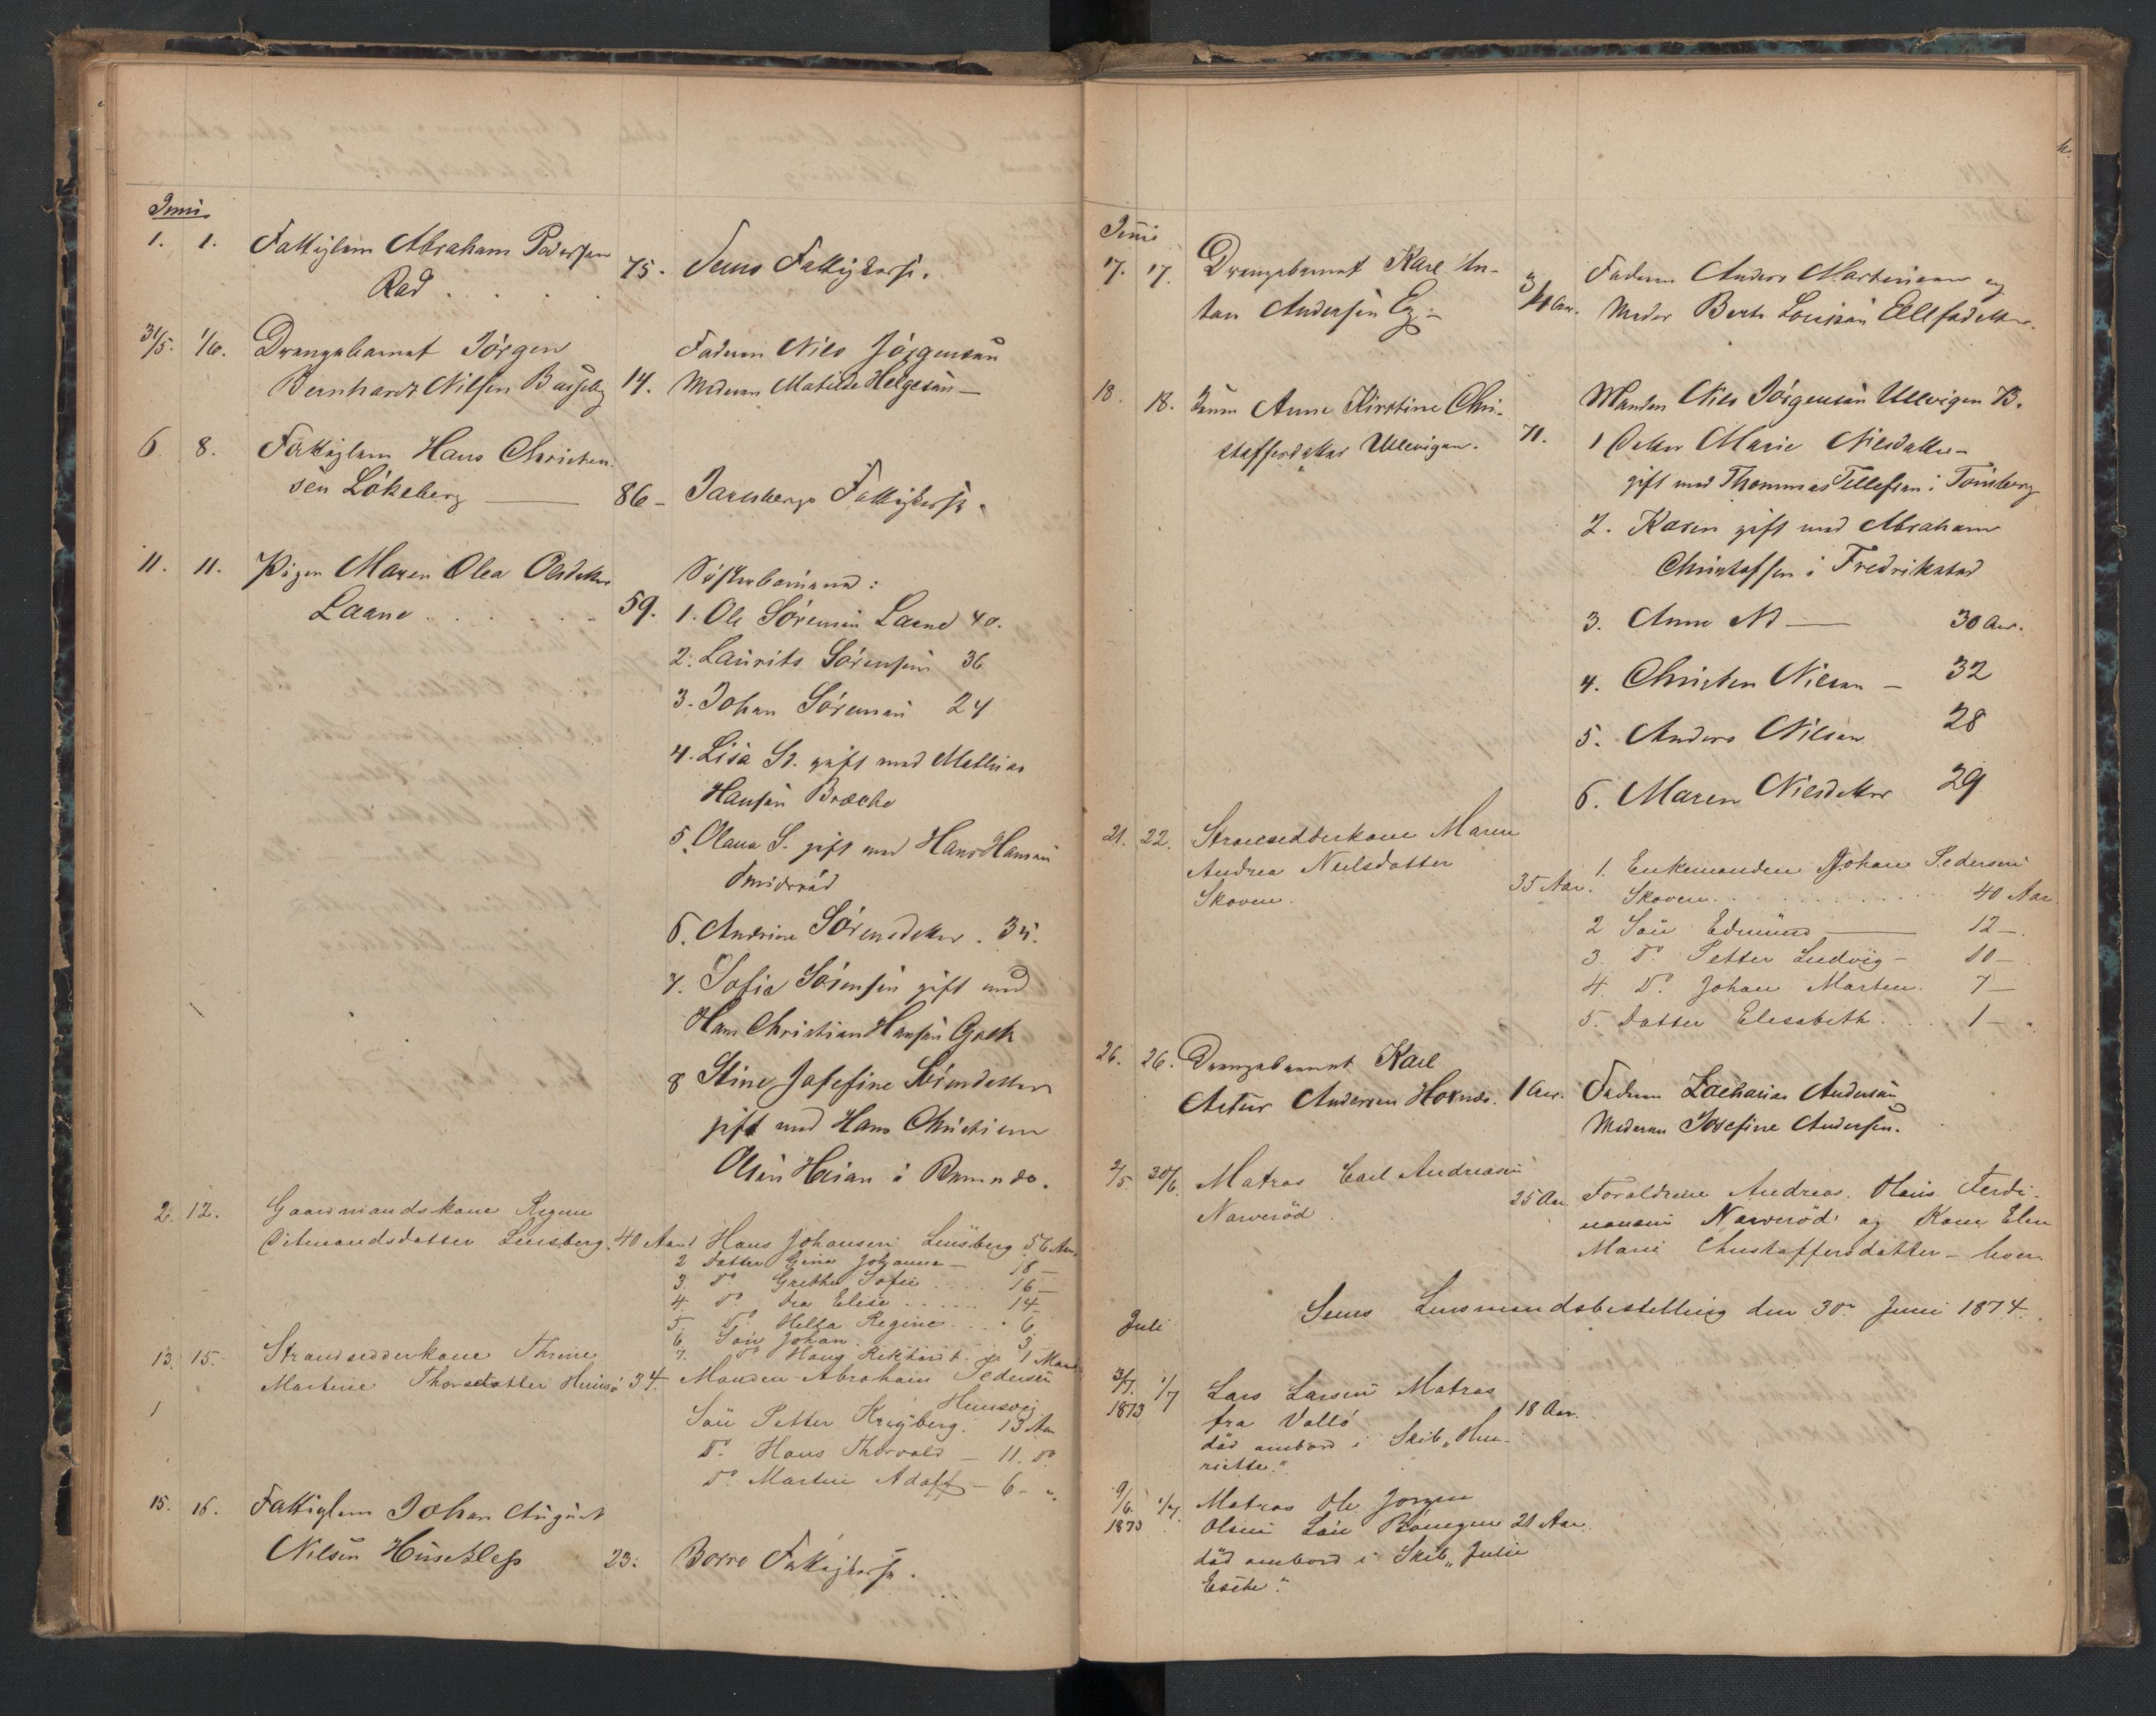 Juni
1. 1. Fattiglem Abraham Pedersen
Rad . . . . 75. Sems Fattigkasse.
31/5. 1/6. Drengebarnet Jörgen Faderen Nils Jörgensen
Bernhardt Nilsen Basseby 14. Moderen Matilde Helgesen —
6 8. Fattiglem Hans Christen-
sen Lökeberg — 86 — Jarlsbergs Fattigkasse.
11. 11. Pigen Maren Olea Olsdatter Systerbörnene:
Laane . . . . 59. 1. Ole Sörensen Laane 40.
2. Laurits Sörensen 36
3. Johan Sörensen 24
4. Lisa Sd. gift med Mathias
Hansen Bræche
5. Olava S. gift med Hans Hansen
Smidsröd
6. Andrine Sörensdatter . 35.
7. Sofie Sörensen gift med
Hans Christian Hansen Gaek
8 Stine Josefine Sörensdatter
gift med Hans Christian
Olsen Heian i Ramnæs.
2. 12. Gaardmandskone Regine
Ditmandsdatter Linsberg. 40 Aar 1 Hans Johansen Linsberg 56 Aar
2 Datter Gina Johanne — 18 —
3. Do Grethe Sofie . . . . 16 —
4. Do Dea Elise . . . . . . 14 —
5. Do Hella Regine . . . . 6
6. Sön Johan . . . 3
7. Do Hans Rikhardt . . 1 Maan
13. 15. Strandsidderkone Thrine
Martine Thorsdatter Husvi 34. Manden Abraham Pedersen
Husvig
1 Sön Petter Krigberg. 13 Aar
Do Hans Thorvald — 11. Do
Do Martin Adolf — 6 — "
15. 16. Fattiglem Johan August
Nilsen Husetless 23. Borre Fattigkasse.
Juni
17. 17. Drengebarnet Karl An- Faderen Anders Martinsen og
ton Andersen Eg — 3/4 Aar. Moder Berte Lovisa Ellefsdatter.
18. 18. Konen Anne Kirstine Chri- Manden Nils Jörgensen Ullevigen 73.
stoffersdatter Ullevigen. 71. 1 Datter Marie Nilsdatter —
gift med Thommas Tellefsen i Tönsberg
2. Karen gift med Abraham
Christoffsen i Fredrikstad
3. Anne Nd — 30 Aar.
4. Christen Nilsen — 32
5. Anders Nilsen 28
6. Maren Nilsdatter 29
21. 22. Strandsidderkone Maren
Andrea Neilsdatter 1. Enkemanden Johan Pedersen
Skoven. 35 Aar. Skoven. . . . . . . . . 40 Aar
2 Sön Edmund — 12 —
3. Do Petter Ludvig — 10 —
4. Do Johan Martin. 7 —
5. Datter Elisabeth . . . 1 — "
26. 26. Drengebarnet Karl
Artur Andersen Hornes. 1 Aar. Faderen Zacharias Andersen
Moderen Josefine Andersen.
2/5. 30/6. Matros Carl Andreasen
Narveröd. 25 Aar Foraldrene Andreas Olaus Ferdi-
nansen Narveröd og Kone Elen
Marie Christoffersdatter — lever.
Sems Lensmandsbestilling den 30te Juni 1874.
Juli
3/7. 1873 1/7 Lars Larsen Matros
fra Vallö 18 Aar.
död ombord i Skib "Hen-
riette."
9/6. 1873 1/7 Matros Ole Jorgen
Olsen Lön Ramnæs 21 Aar.
död ombord i Skib "Julie
Esche."